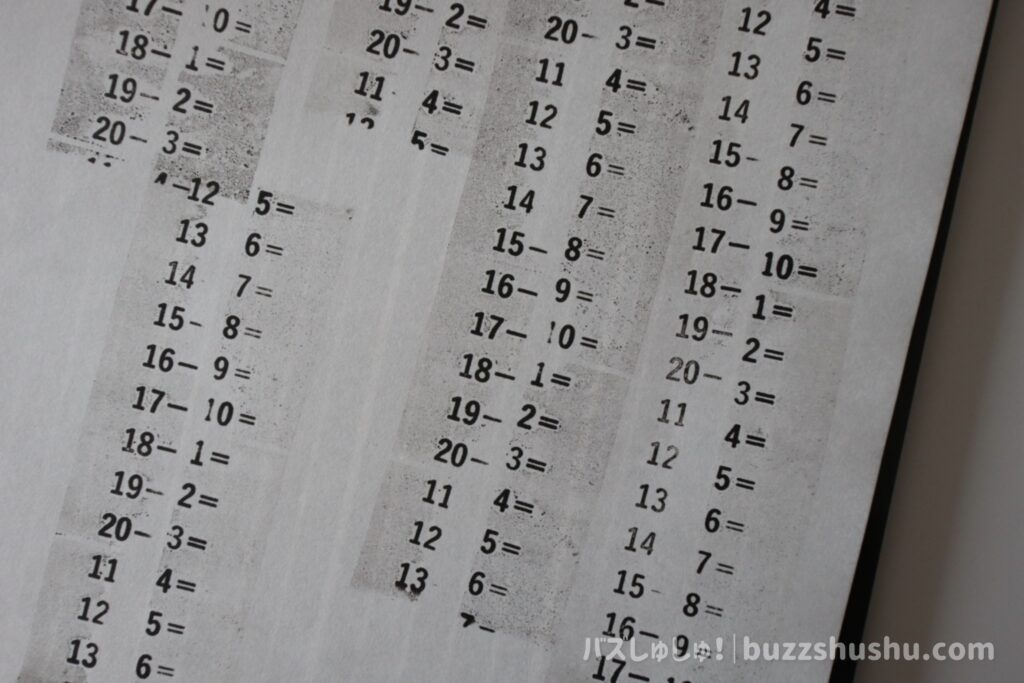 17− 10=
18− 1=
19− 2=
20− 3=
12 5=
13 6=
14 7=
15- 8=
16− 9=
17− 10=
18− 1=
19− 2=
20− 3=
11 4=
12 5=
13 6=
19− 2=
20− 3=
11 4=
12 5=
20− 3=
11 4=
12 5=
13 6=
14 7=
15− 8=
16− 9=
17− 10=
18− 1=
19− 2=
20− 3=
11 4=
12 5=
13 6=
4=
12 5=
13 6=
14 7=
15- 8=
16− 9=
17− 10=
18− 1=
19− 2=
20− 3=
11 4=
12 5=
13 6=
14 7=
15 - 8=
16− 9=
17−
バズしゅしゅ!|buzzshushu.com